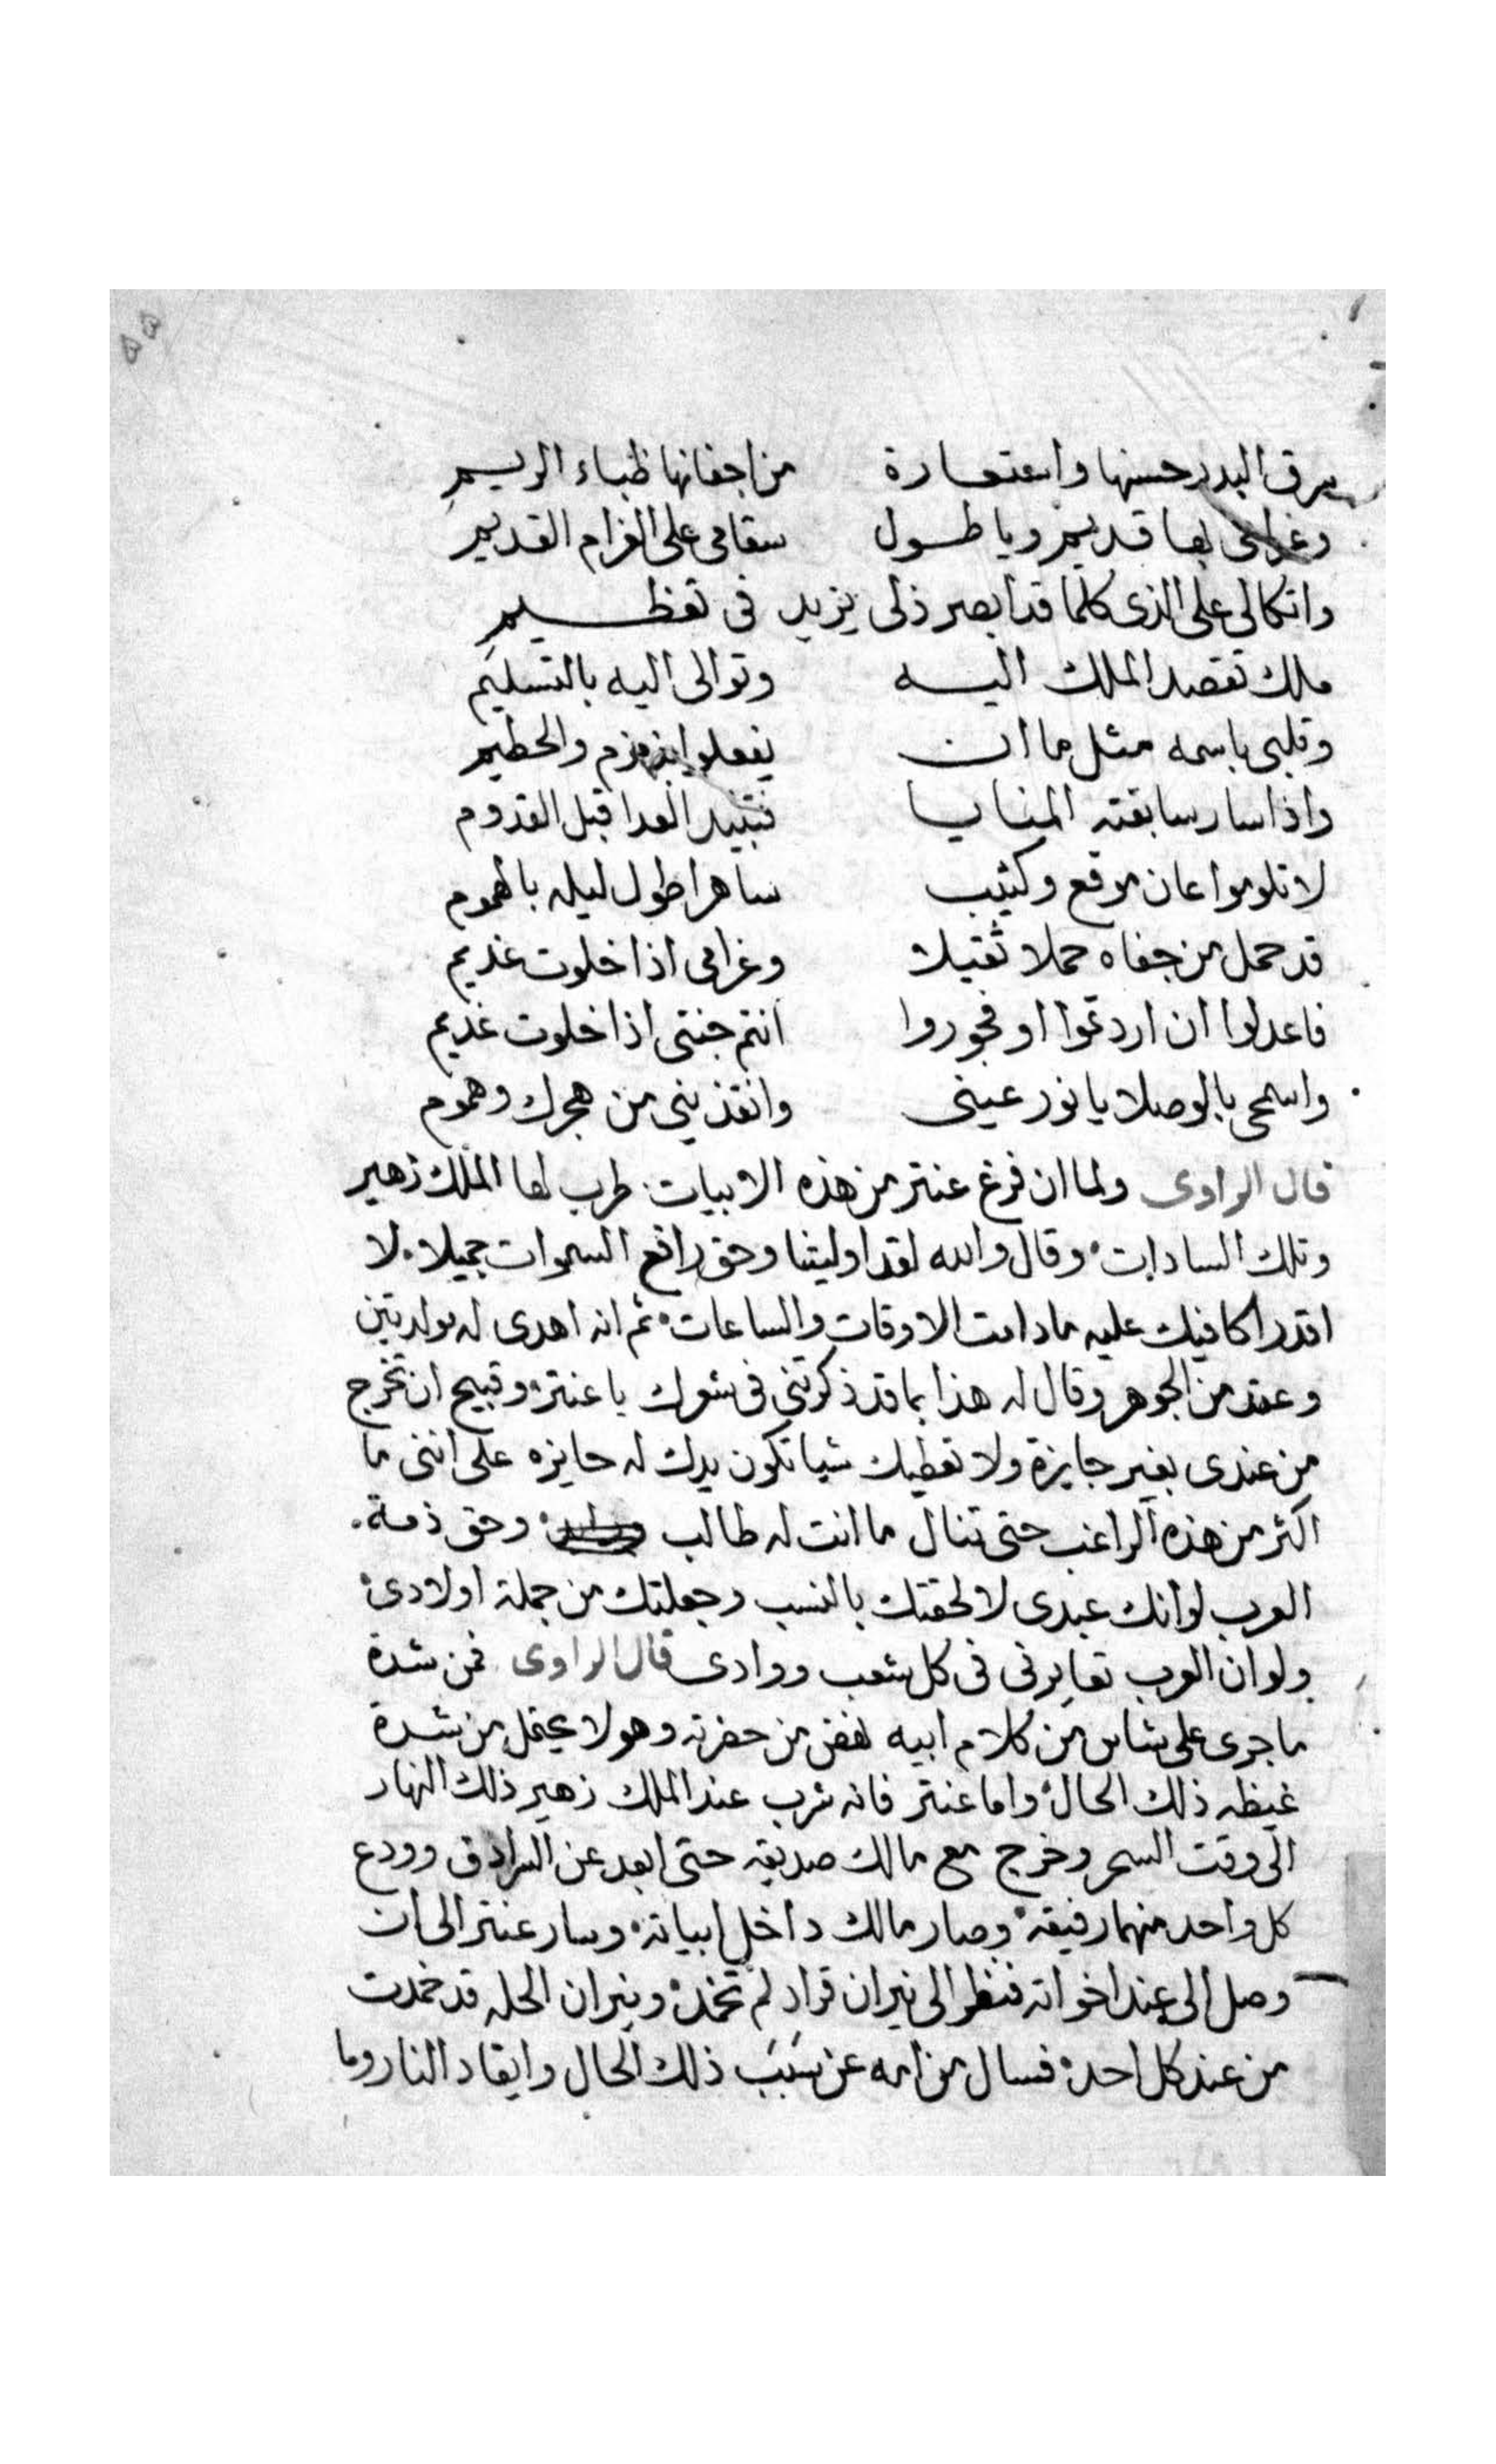 سرق البدر حسنها واستعارة من اجفانها ظباء الريم
وغرامى بها قديم ويا طول سقامى على الغرام القديم
واتكالى على الذى كلما قد ابصر ذلى يزيد فى تعظيم
ملك تقصد الملك اليه وتوالى اليه بالتسليم
وقلبى باسمه مثل ما ان يفعلوا بزمزم والحطيم
واذا سار سابقته المنايا فتبيد العدا قبل القدوم
لا تلوموا عان موقع وكئيب ساهرا طول ليله بالهموم
قد حمل من جفاه حملا ثقيلا وغرامى اذا خلوت غديم
فاعدلوا ان اردتموا او فجوروا انتم جنتى اذا خلوت غديم
واسمحى بالوصلا يا نور عينى وانقذينى من هجرك وهموم
قال الراوى ولما ان فرغ عنتر من هذه الابيات طرب لها الملك زهير
وتلك السادات وقال والله لقد اوليتنا وحق رافع السموات جميلا لا
اقدر اكافيك عليه ما دامت الاوقات والساعات ثم انه اهدى له مولدتين
وعقد من الجوهر وقال له هذا بما قد ذكرتنى فى شعرك يا عنتر وقبيح ان تخرج
من عندى بغير جايزة ولا نعطيك شيا تكون يدك له حايزه على اننى ما
اكثر من هذه الراغب حتى تنال ما انت له طالب وحق ذمة
العرب لو انك عبدى لالحقتك بالنسب وجعلتك من جملة اولادى
ولو ان العرب تعايرنى فى كل شعب ووادى قال الراوى فمن شدة
ما جرى على شاس من كلام ابيه نهض من حضرته وهو لا يعقل من شدة
غيظه ذلك الحال واما عنتر فانه شرب عند الملك زهير ذلك النهار
الى وقت السحر وخرج مع مالك صديقه حتى ابعد عن السرادق وودع
كل واحد منهما رفيقه وصار مالك داخل ابياته وسار عنتر الى ان
وصل الى عند اخواته فنظر الى نيران قراد لم تخمد ونيران الحله قد خمدت
من عند كل احد فسال من امه عن سبب ذلك الحال وايقاد النار وما